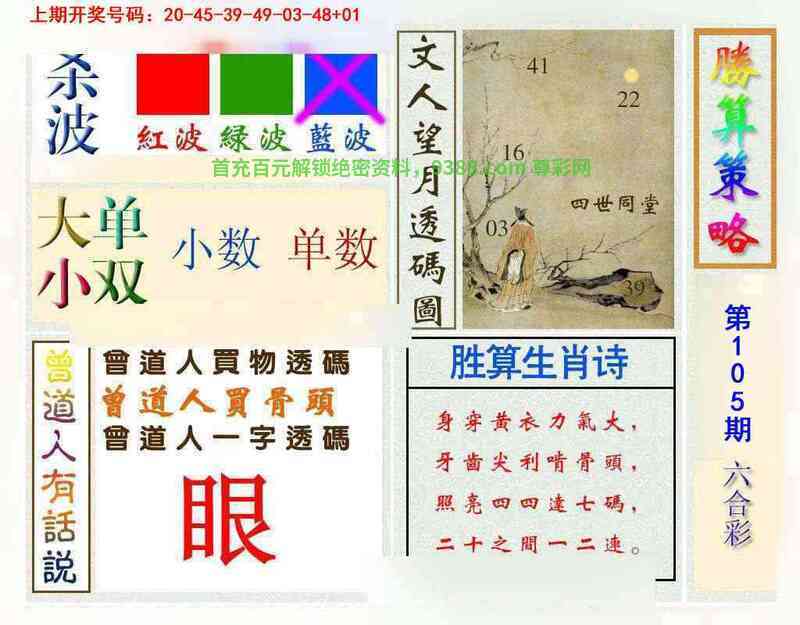 上期开奖号码：20-45-39-49-03-48+01
杀波
紅波 緑波 藍波
大单小双
小数 单数
文人望月透碼圖
41
22
16
四世同堂
03
39
首充百元解锁绝密资料，0388.com 尊彩网
勝算策略
第105期
六合彩
曾道人有話説
曾道人買物透碼
曾道人買骨頭
曾道人一字透碼
眼
胜算生肖诗
身穿黄衣力氣大，
牙齒尖利啃骨頭，
照亮四四逹七碼，
二十之間一二連。